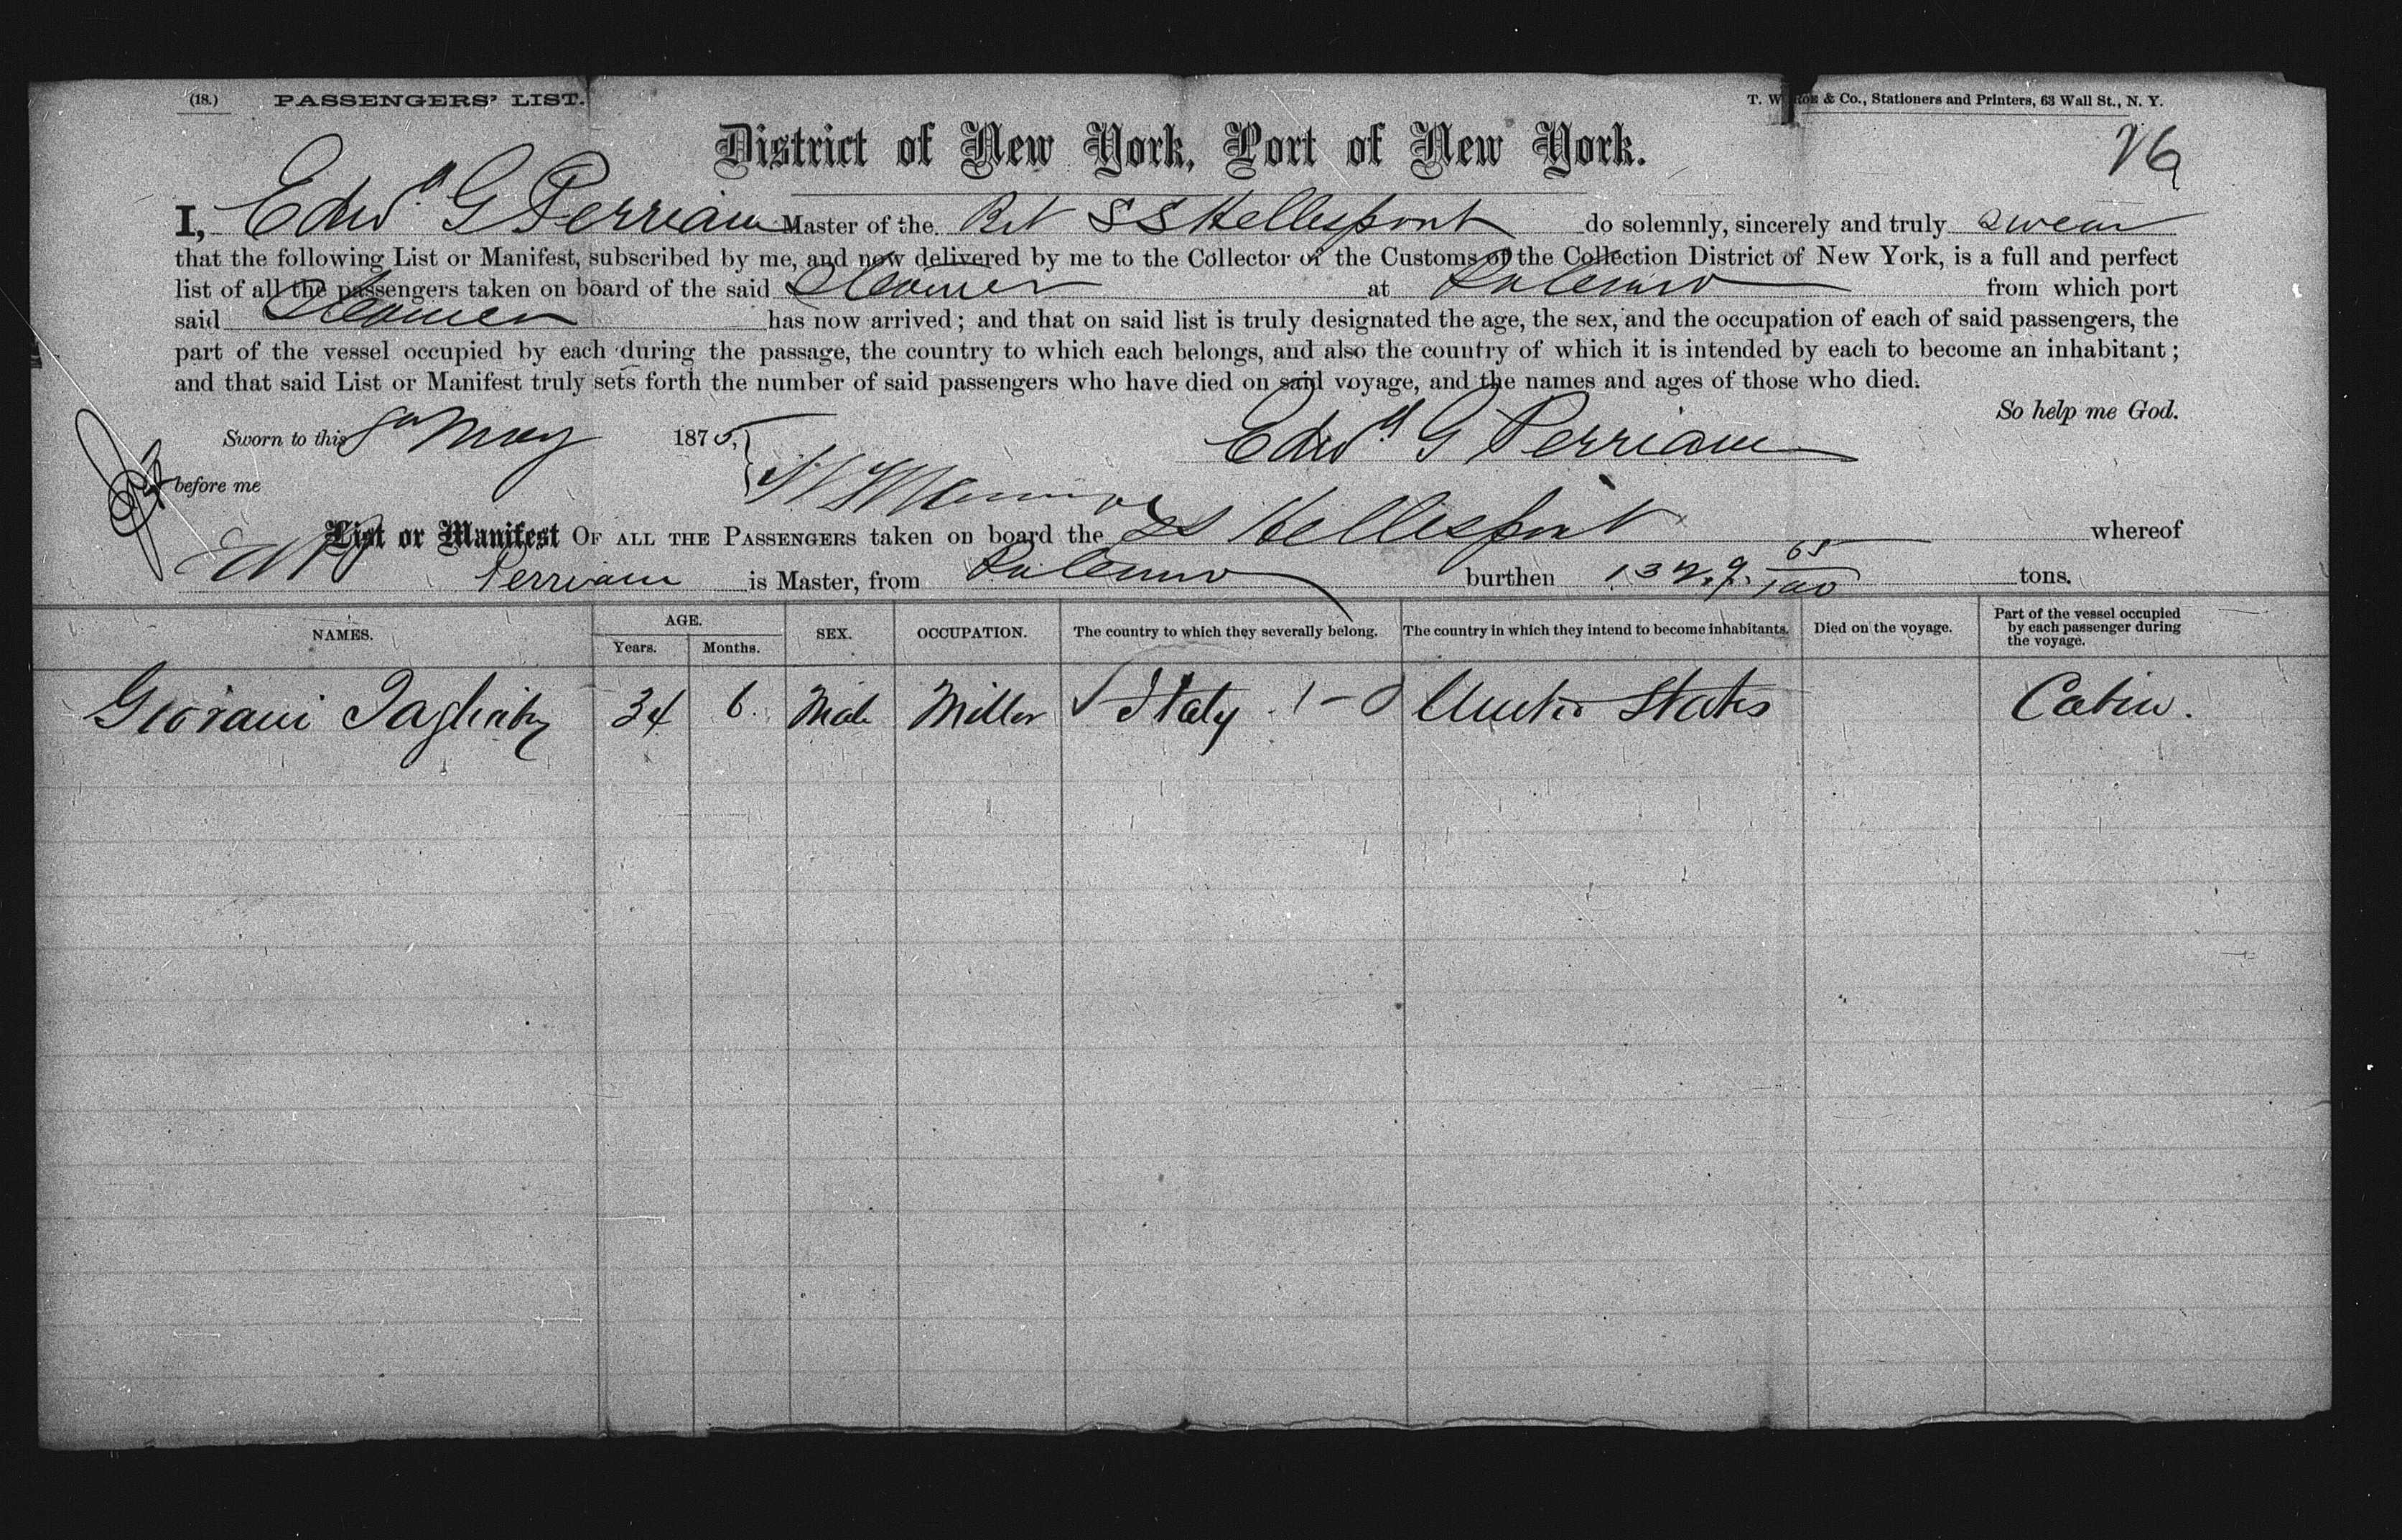 (18.) PASSENGERS' LIST.
& Co., Stationers and Printers, 63 Wall St., N. Y.
District of New York, Port of New York.
I, Edwd G Perriam Master of the Brt SS Hellespont do solemnly, sincerely and truly swear
that the following List or Manifest, subscribed by me, and now delivered by me to the Collector of the Customs of the Collection District of New York, is a full and perfect
list of all the passengers taken on board of the said Steamer at Palermo from which port
said Steamer has now arrived; and that on said list is truly designated the age, the sex, and the occupation of each of said passengers, the
part of the vessel occupied by each during the passage, the country to which each belongs, and also the country of which it is intended by each to become an inhabitant;
and that said List or Manifest truly sets forth the number of said passengers who have died on said voyage, and the names and ages of those who died.
So help me God.
Sworn to this May 1875, Edwd G Perriam
before me
List or Manifest OF ALL THE PASSENGERS taken on board the SS Hellespont whereof
Perriam is Master, from Palermo burthen 1329 65/100 tons.
NAMES. AGE. Years. Months. SEX. OCCUPATION. The country to which they severally belong. The country in which they intend to become inhabitants. Died on the voyage. Part of the vessel occupied by each passenger during the voyage.
Giovani 34 6. Male Miller Italy 1-0 United States Cabin.